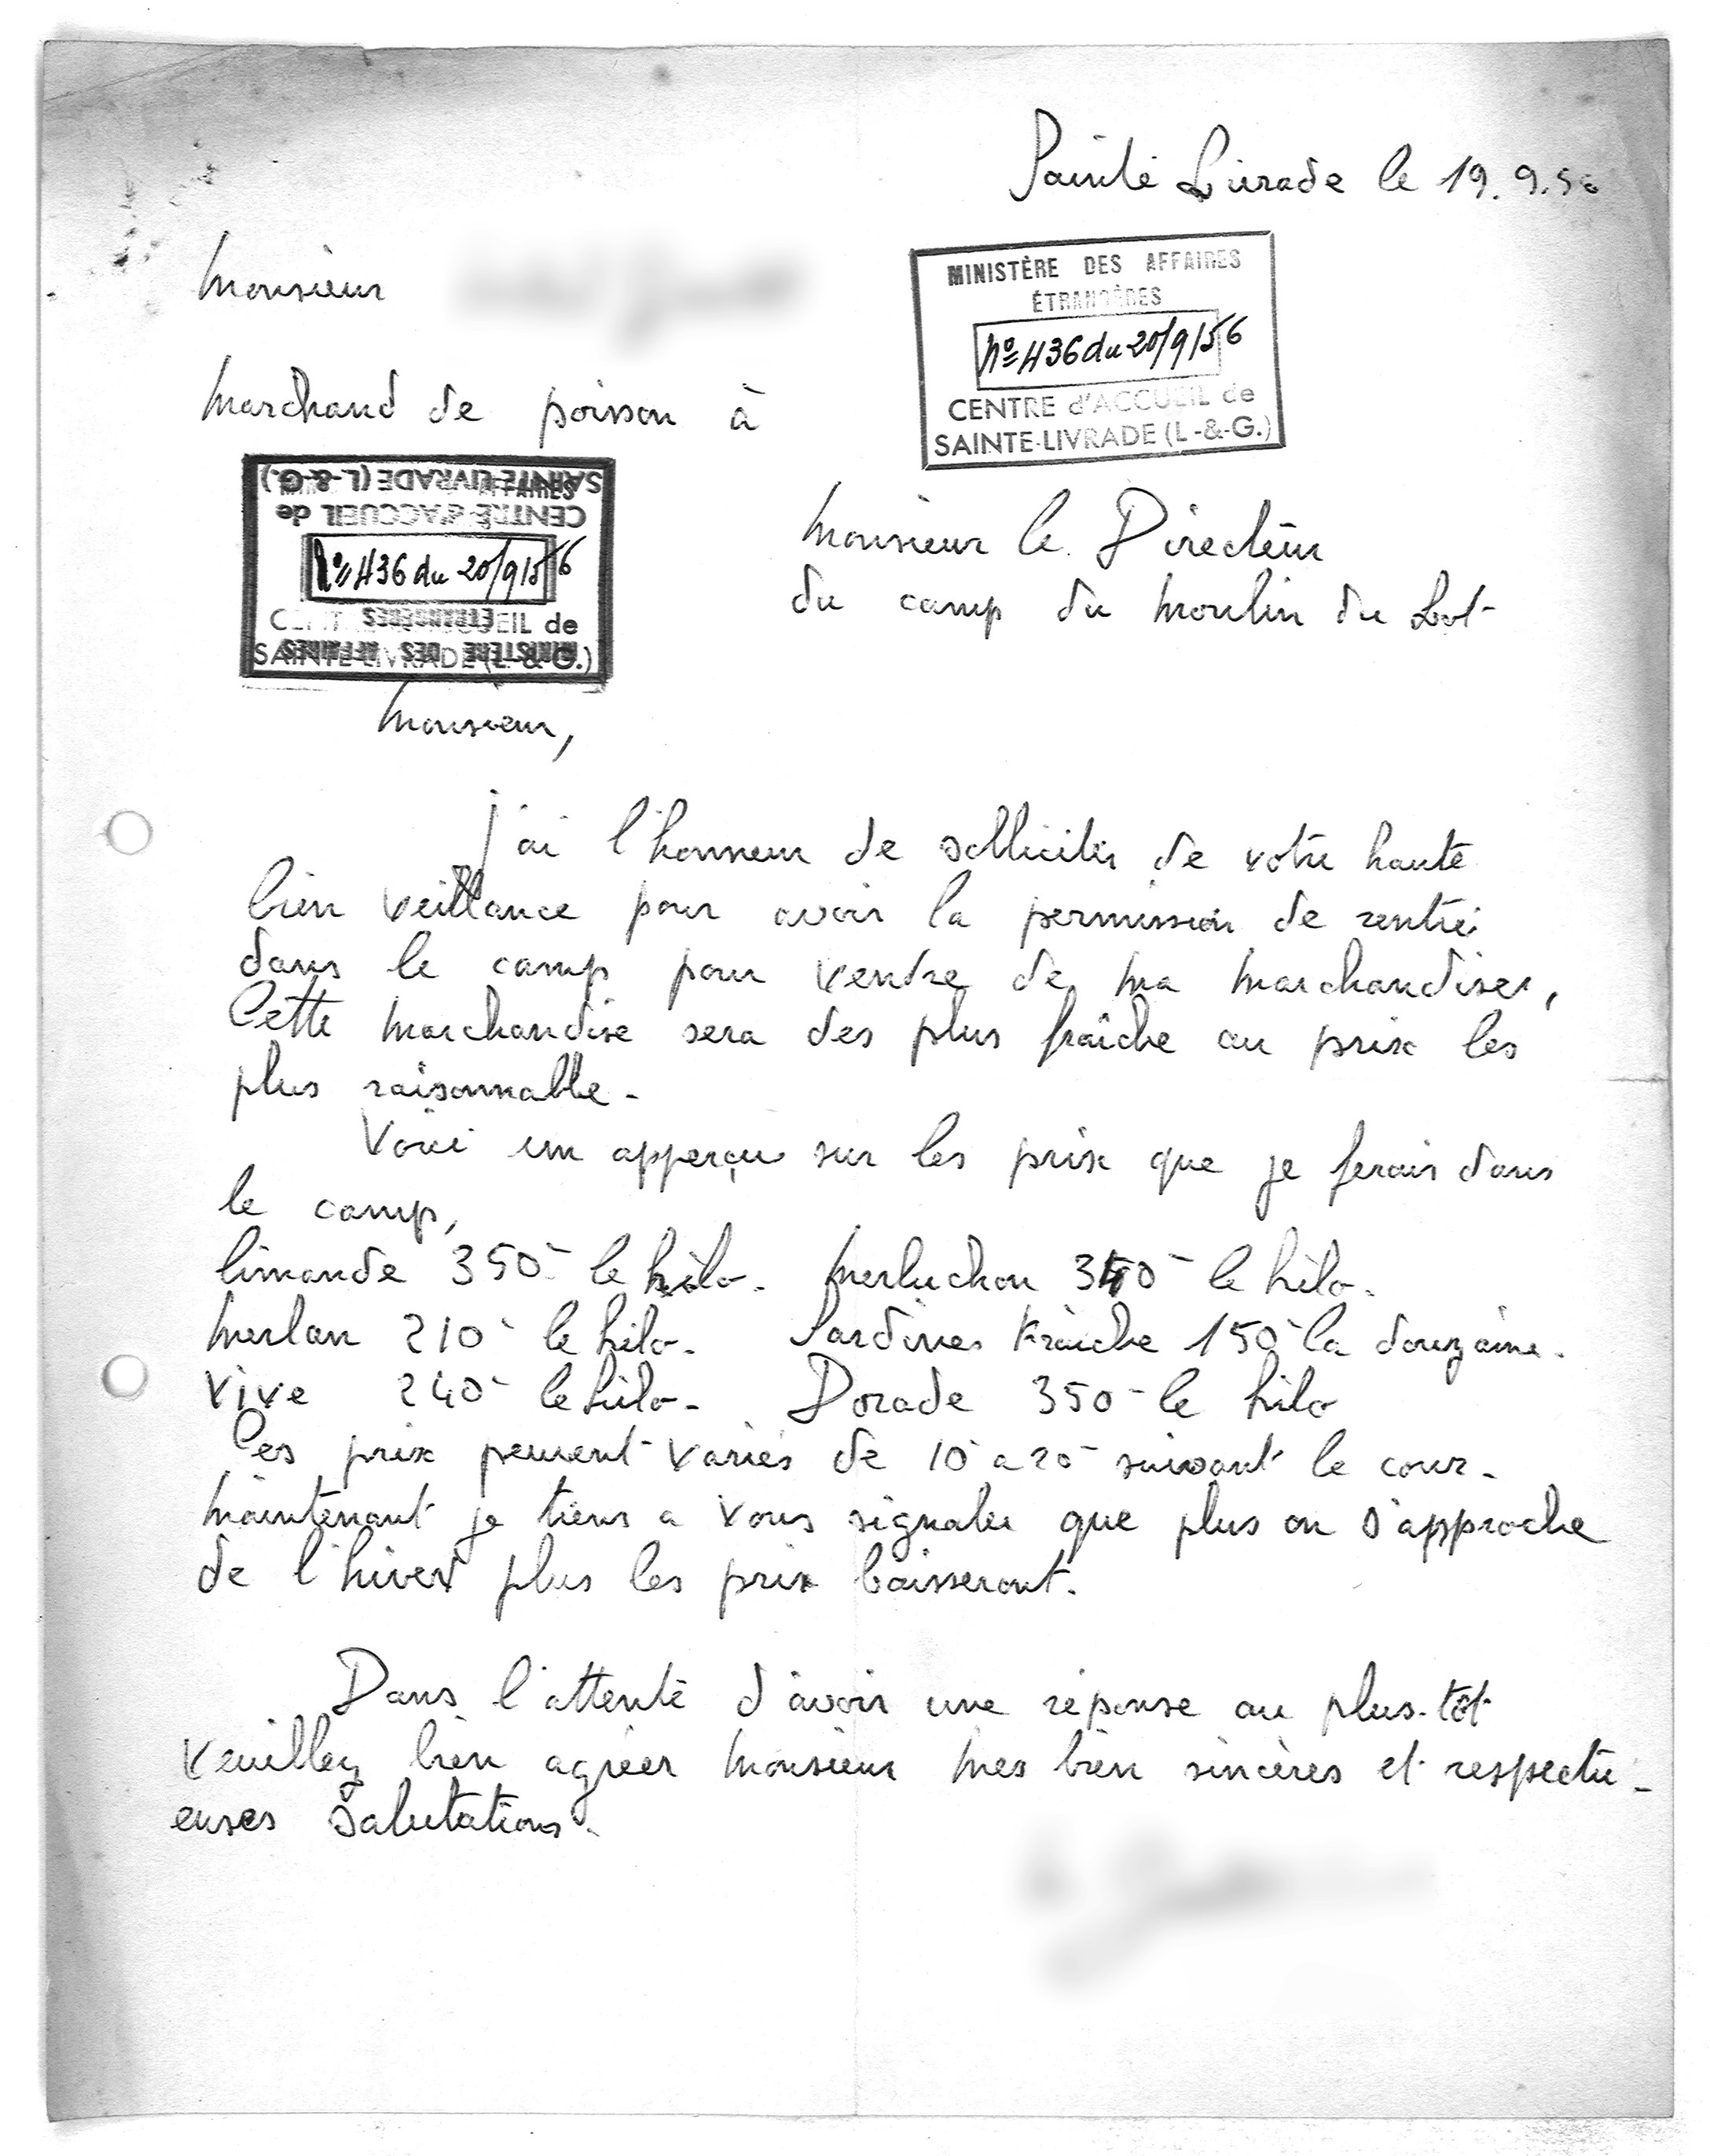 Sainte Livrade le 19.9.56
Monsieur
MINISTÈRE DES AFFAIRES
ÉTRANGÈRES
N° 436 du 20/9/56
CENTRE d'ACCUEIL de
SAINTE-LIVRADE (L-&-G.)
marchand de poisson à
N° 436 du 20/9/56
CENTRE d'ACCUEIL de
SAINTE-LIVRADE (L-&-G.)
Monsieur le Directeur
du camp du Moulin du Lot
Monsieur,
J'ai l'honneur de solliciter de votre haute
bien veillance pour avoir la permission de rentré
dans le camp pour vendre de ma marchandises,
Cette marchandise sera des plus fraîche au prix les
plus raisonnable.
Voici un apperçu sur les prix que je ferais dans
le camp,
limande 350- le kilo. Merluchon 340- le kilo.
Merlan 210- le kilo. Sardines fraiche 150- la douzaine.
Vive 240- le kilo. Dorade 350- le kilo
Ces prix peuvent variés de 10 a 20- suivant le cour.
Maintenant je tiens a vous signaler que plus on s'approche
de l'hiver plus les prix baisseront.
Dans l'attente d'avoir une réponse au plus-tôt
Veuillez bien agréer Monsieur mes bien sincères et respectu-
euses salutations.